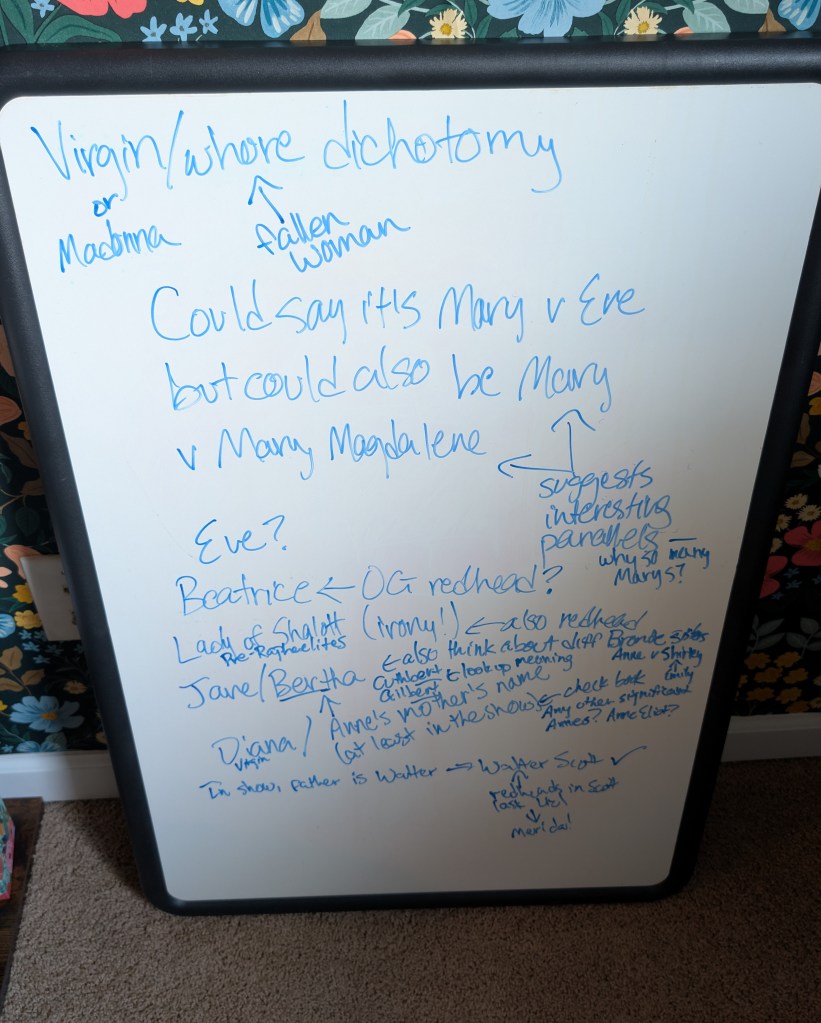 Virgin/whore dichotomy
or
Madonna
↑
fallen
woman
Could say it's Mary v Eve
but could also be Mary
v Mary Magdalene
← ↑
suggests
interesting
parallels —
why so many
Marys?
Eve?
Beatrice ← OG redhead?
Lady of Shalott (irony!) ← also redhead
Pre-Raphaelites
Jane/Bertha ← also think about diff Bronte sisters
Anne v Shirley
↑
Emily
Cuthbert ← look up meaning
Gilbert
↑
Diana/ Anne's mother's name
Virgin
(at least in the show) ← check book
Any other significant
Annes? Anne Eliot?
In show, father is Walter → Walter Scott ✓
↑
redheads in Scott
↓
Merida!